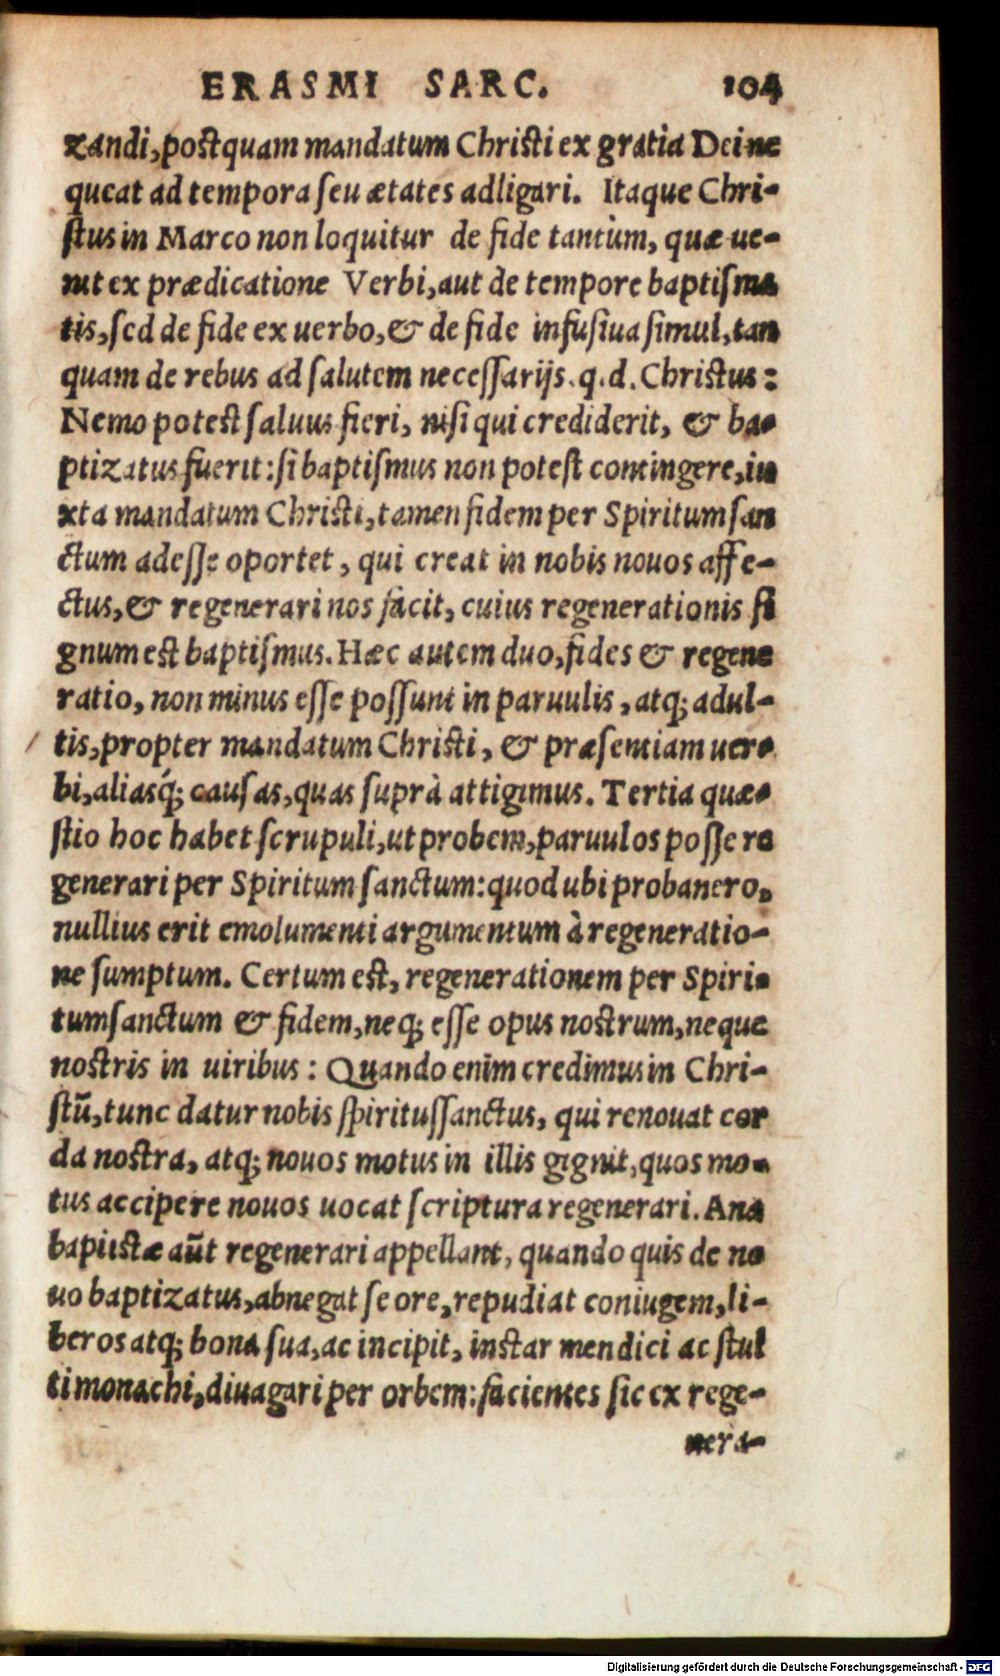 ERASMI SARC. 104
zandi, postquam mandatum Christi ex gratia Dei ne
queat ad tempora ſeu ætates adligari. Itaque Chri-
ſtus in Marco non loquitur de fide tantùm, quæ ue-
nit ex prædicatione Verbi, aut de tempore baptiſma
tis, ſed de fide ex uerbo, & de fide infuſiua ſimul, tan
quam de rebus ad ſalutem neceſſarijs. q. d. Christus:
Nemo potest ſaluus fieri, niſi qui crediderit, & ba-
ptizatus fuerit: ſi baptiſmus non poteſt contingere, iu
xta mandatum Christi, tamen fidem per Spiritum ſan
ctum adeſſe oportet, qui creat in nobis nouos affe-
ctus, & regenerari nos facit, cuius regenerationis ſi
gnum est baptiſmus. Hæc autem duo, fides & regene
ratio, non minus eſſe poſſunt in paruulis, atq; adul-
tis, propter mandatum Christi, & præſentiam uer-
bi, aliasq́; cauſas, quas ſuprà attigimus. Tertia quæ-
ſtio hoc habet ſcrupuli, ut probem, paruulos poſſe re
generari per Spiritum ſanctum: quod ubi probauero,
nullius erit emolumenti argumentum à regeneratio-
ne ſumptum. Certum est, regenerationem per Spiri-
tumſanctum & fidem, neq; eſſe opus nostrum, neque
nostris in uiribus: Quando enim credimus in Chri-
ſtū, tunc datur nobis ſpirituſſanctus, qui renouat cor
da nostra, atq; nouos motus in illis gignit, quos mo-
tus accipere nouos uocat ſcriptura regenerari. Ana
baptistæ aūt regenerari appellant, quando quis de no
uo baptizatus, abnegat ſe ore, repudiat coniugem, li-
beros atq; bona ſua, ac incipit, instar mendici ac ſtul
ti monachi, diuagari per orbem: facientes ſic ex rege-
nera-
Digitalisierung gefördert durch die Deutsche Forschungsgemeinschaft - DFG